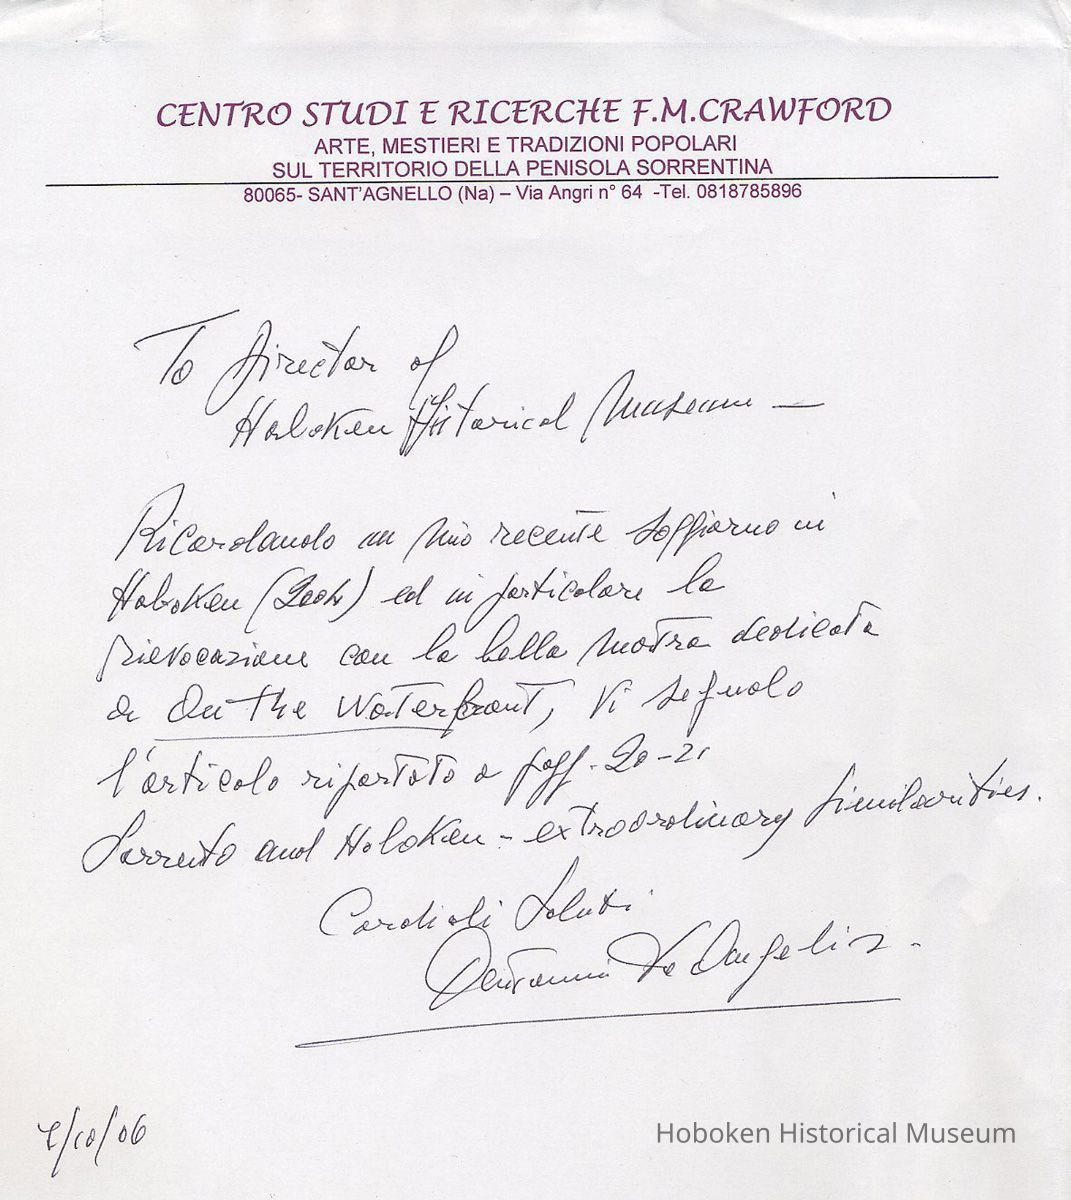 CENTRO STUDI E RICERCHE F.M.CRAWFORD
ARTE, MESTIERI E TRADIZIONI POPOLARI
SUL TERRITORIO DELLA PENISOLA SORRENTINA
80065- SANT'AGNELLO (Na) – Via Angri n° 64 -Tel. 0818785896
To Director of
Hoboken Historical Museum —
Ricordando un mio recente soggiorno in
Hoboken (2004) ed in particolare la
rievocazione con la bella mostra dedicata
a On the Waterfront, Vi segnalo
l'articolo riportato a pagg. 20-21
Sorrento and Hoboken - extraordinary similarities.
Cordiali Saluti
De Angelis
/10/06
Hoboken Historical Museum